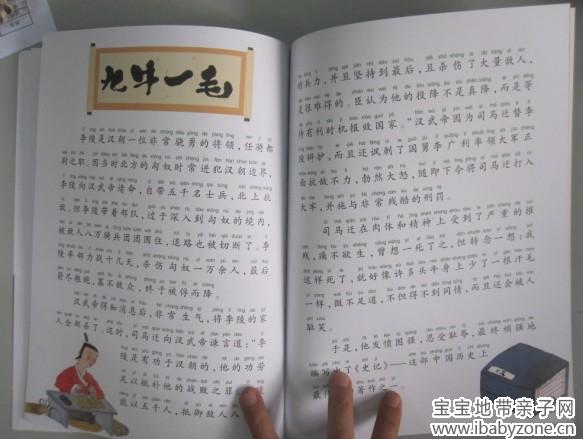 九牛一毛
李陵是汉朝一位非常骁勇的将领，任骑都
尉之职。因当时北方的匈奴时常进犯汉朝边界，
李陵向汉武帝请命，自带五千名士兵，北上抗
敌。但李陵带着部队，过于深入到匈奴的境内，
被敌人八万骑兵团团围住，道路也被切断了。李
陵率部力战十几天，杀伤匈奴一万余人，最后
因寡不敌众，终于被俘而降。
汉武帝得知消息后，非常生气，将李陵的家
人全部杀了。这时，司马迁向汉武帝谏言道：“李
陵是有功于汉朝的，他的功劳
足以抵补他的战败之罪
就以五千人，抵御敌人八
的兵力，并且坚持到最后，且杀伤了大量敌人，
是很难得的。臣认为他的投降不是真降，而是等
待有利时机报效国家。”汉武帝因为司马迁替李
陵辩护，而且还讽刺了国舅李广利率领大军正
面抗敌不力，勃然大怒，随即下令将司马迁打入
大牢，并施与非常残酷的刑罚。
司马迁在肉体和精神上受到了严重的摧
残，痛不欲生，曾想一死了之，但转念一想：我
这样死了，就好像许多头牛身上少了一根汗毛
一样，微不足道，不但得不到同情，而且还会被人
耻笑。
于是，他发愤图强，忍受耻辱，最终顽强地
编写了《史记》——这部中国历史上
最 著作之一。
宝宝地带亲子网
www.ibabyzone.cn